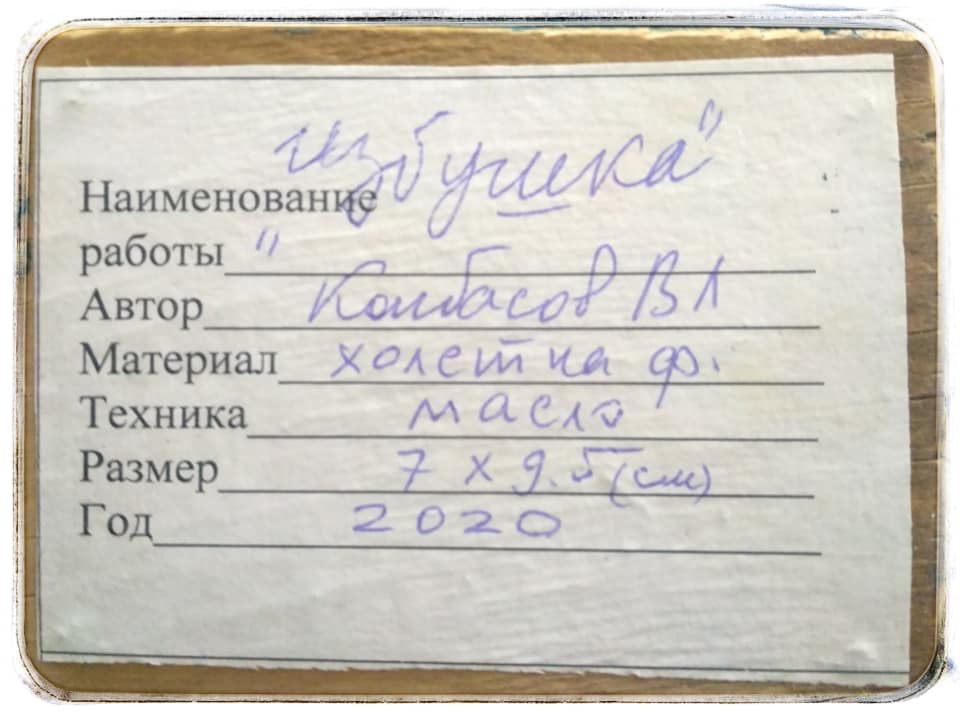 "Избушка"
Наименование
работы "
Автор Колбасов ВЛ
Материал холст на ф.
Техника масло
Размер 7 х 9.5 (см)
Год 2020